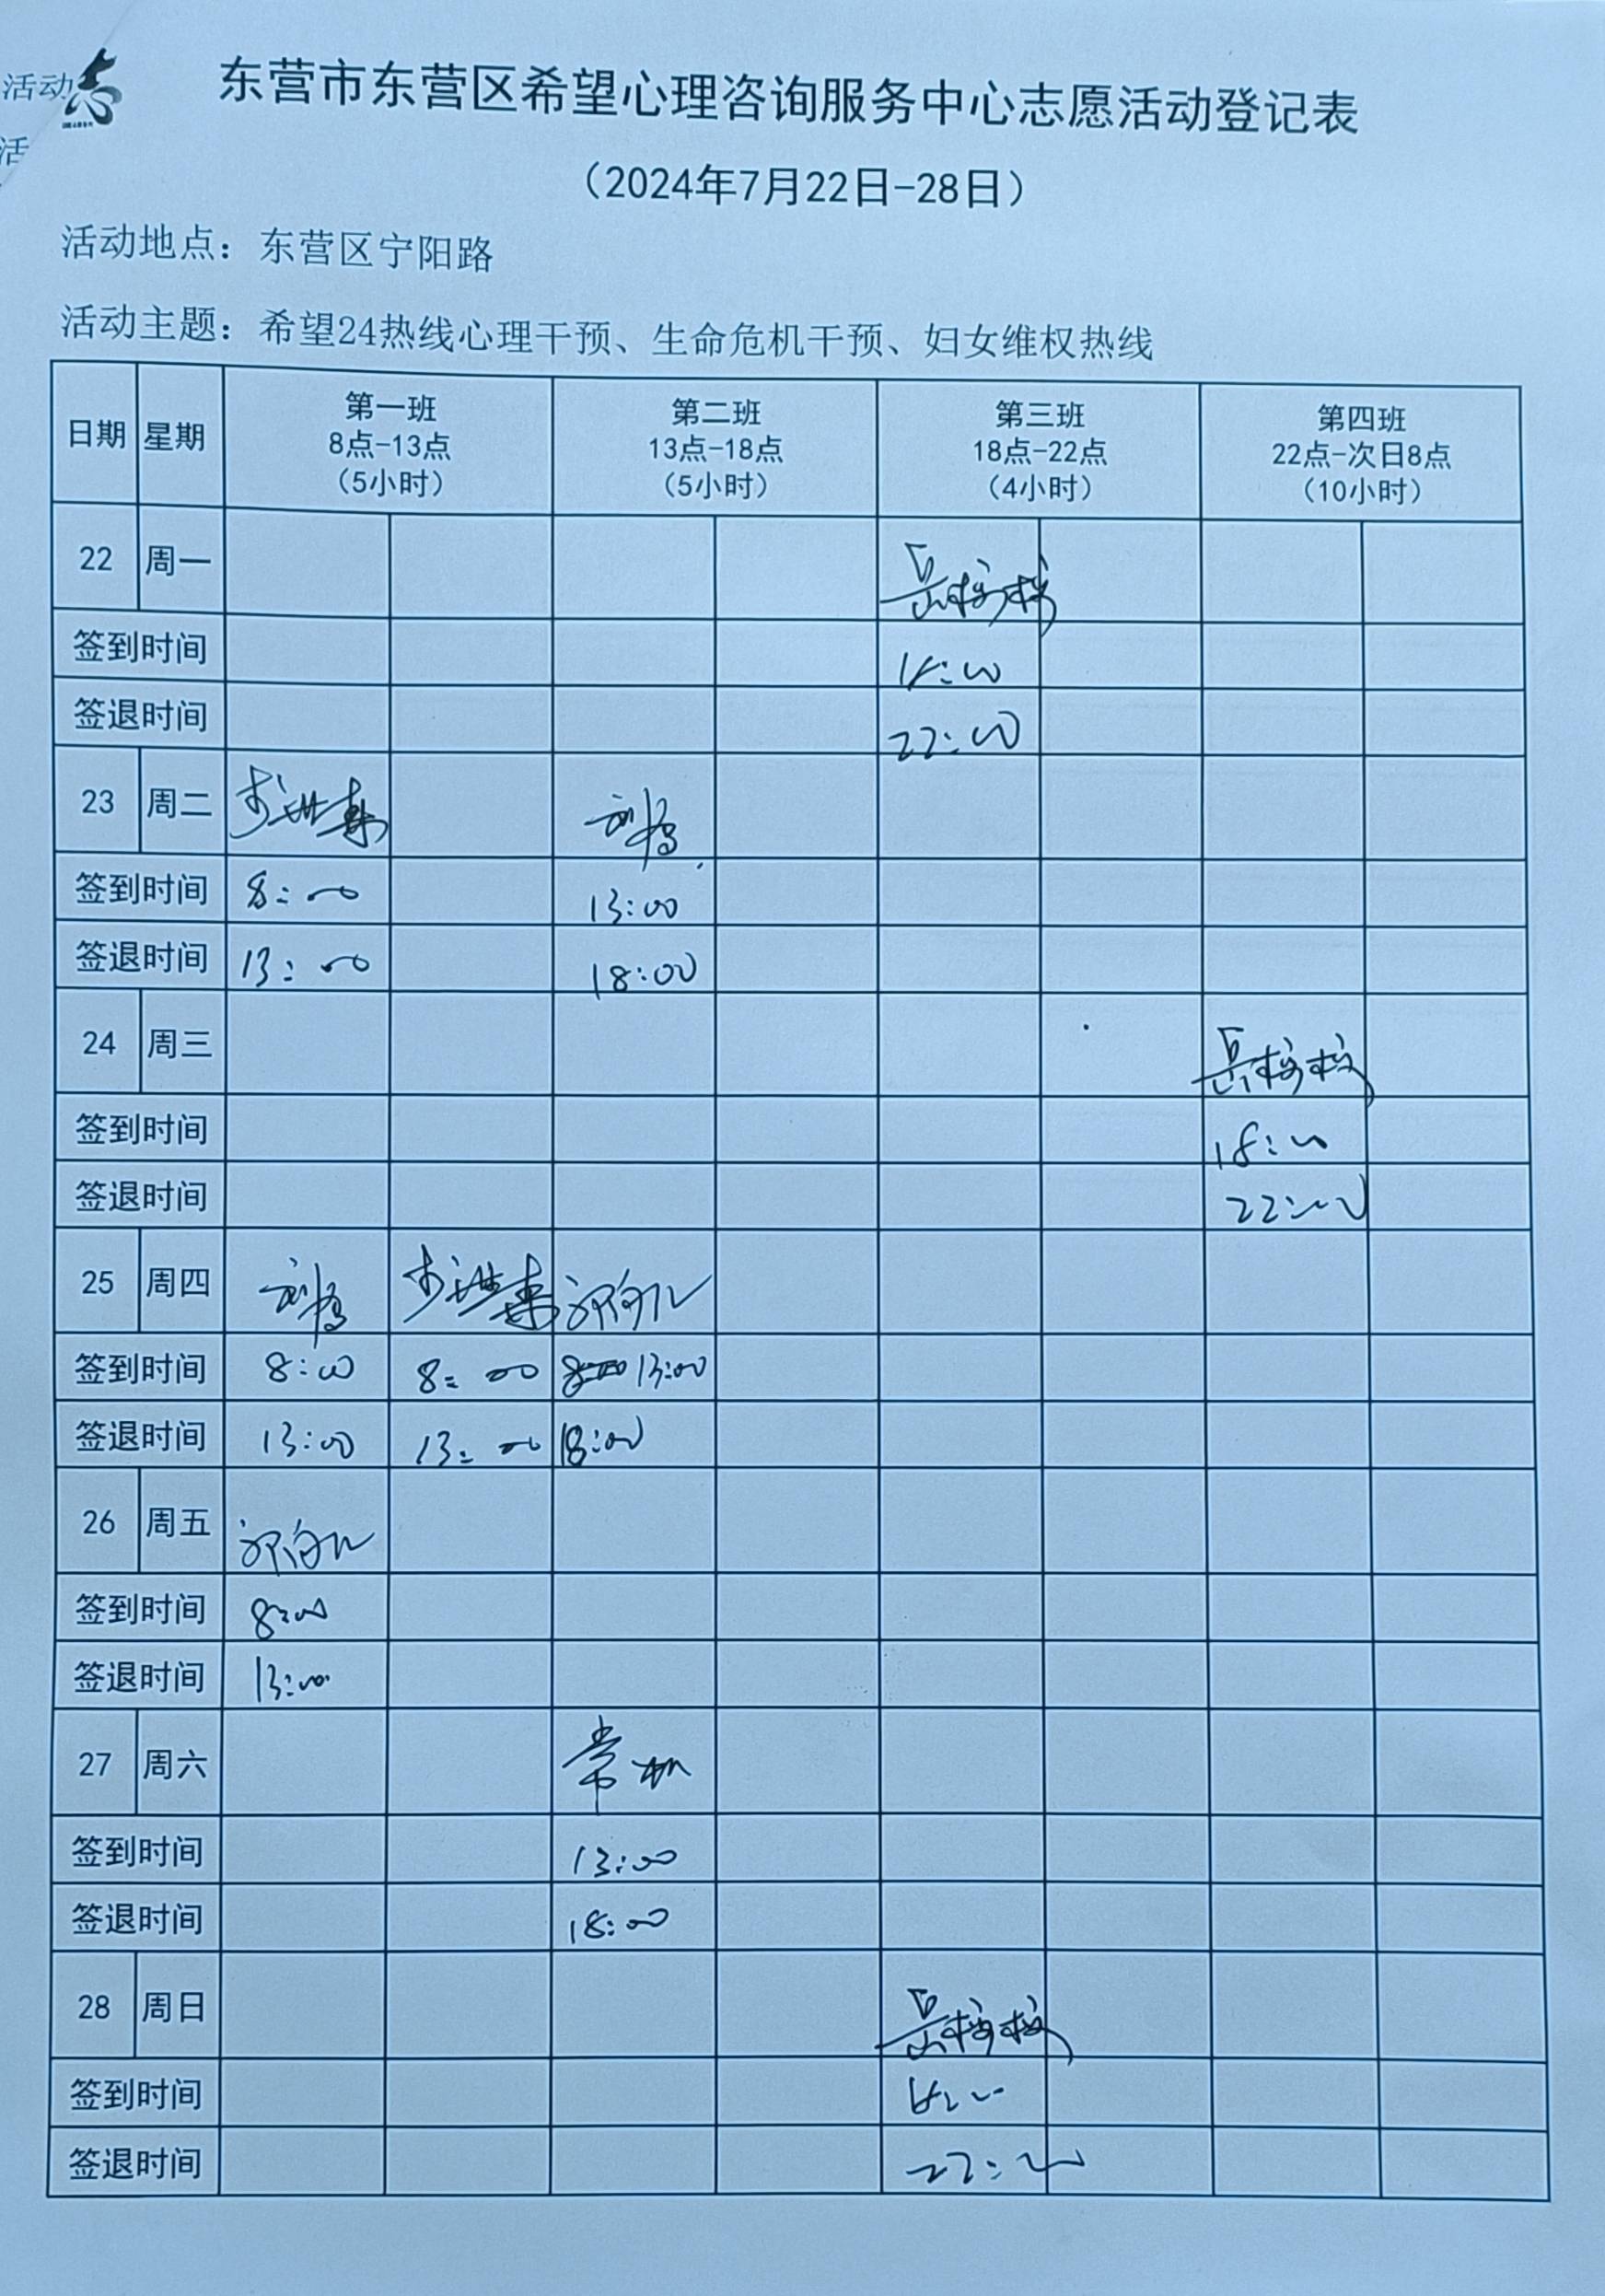 活动
活
东营市东营区希望心理咨询服务中心志愿活动登记表
（2024年7月22日-28日）
活动地点：东营区宁阳路
活动主题：希望24热线心理干预、生命危机干预、妇女维权热线
日期 星期 第一班 8点-13点 （5小时） 第二班 13点-18点 （5小时） 第三班 18点-22点 （4小时） 第四班 22点-次日8点 （10小时）
22 周一
签到时间 18:00
签退时间 22:00
23 周二
签到时间 8:00 13:00
签退时间 13:00 18:00
24 周三
签到时间 18:00
签退时间 22:00
25 周四
签到时间 8:00 8:00 13:00
签退时间 13:00 13:00 18:00
26 周五
签到时间 8:00
签退时间 13:00
27 周六 常
签到时间 13:00
签退时间 18:00
28 周日
签到时间 18:00
签退时间 22:00